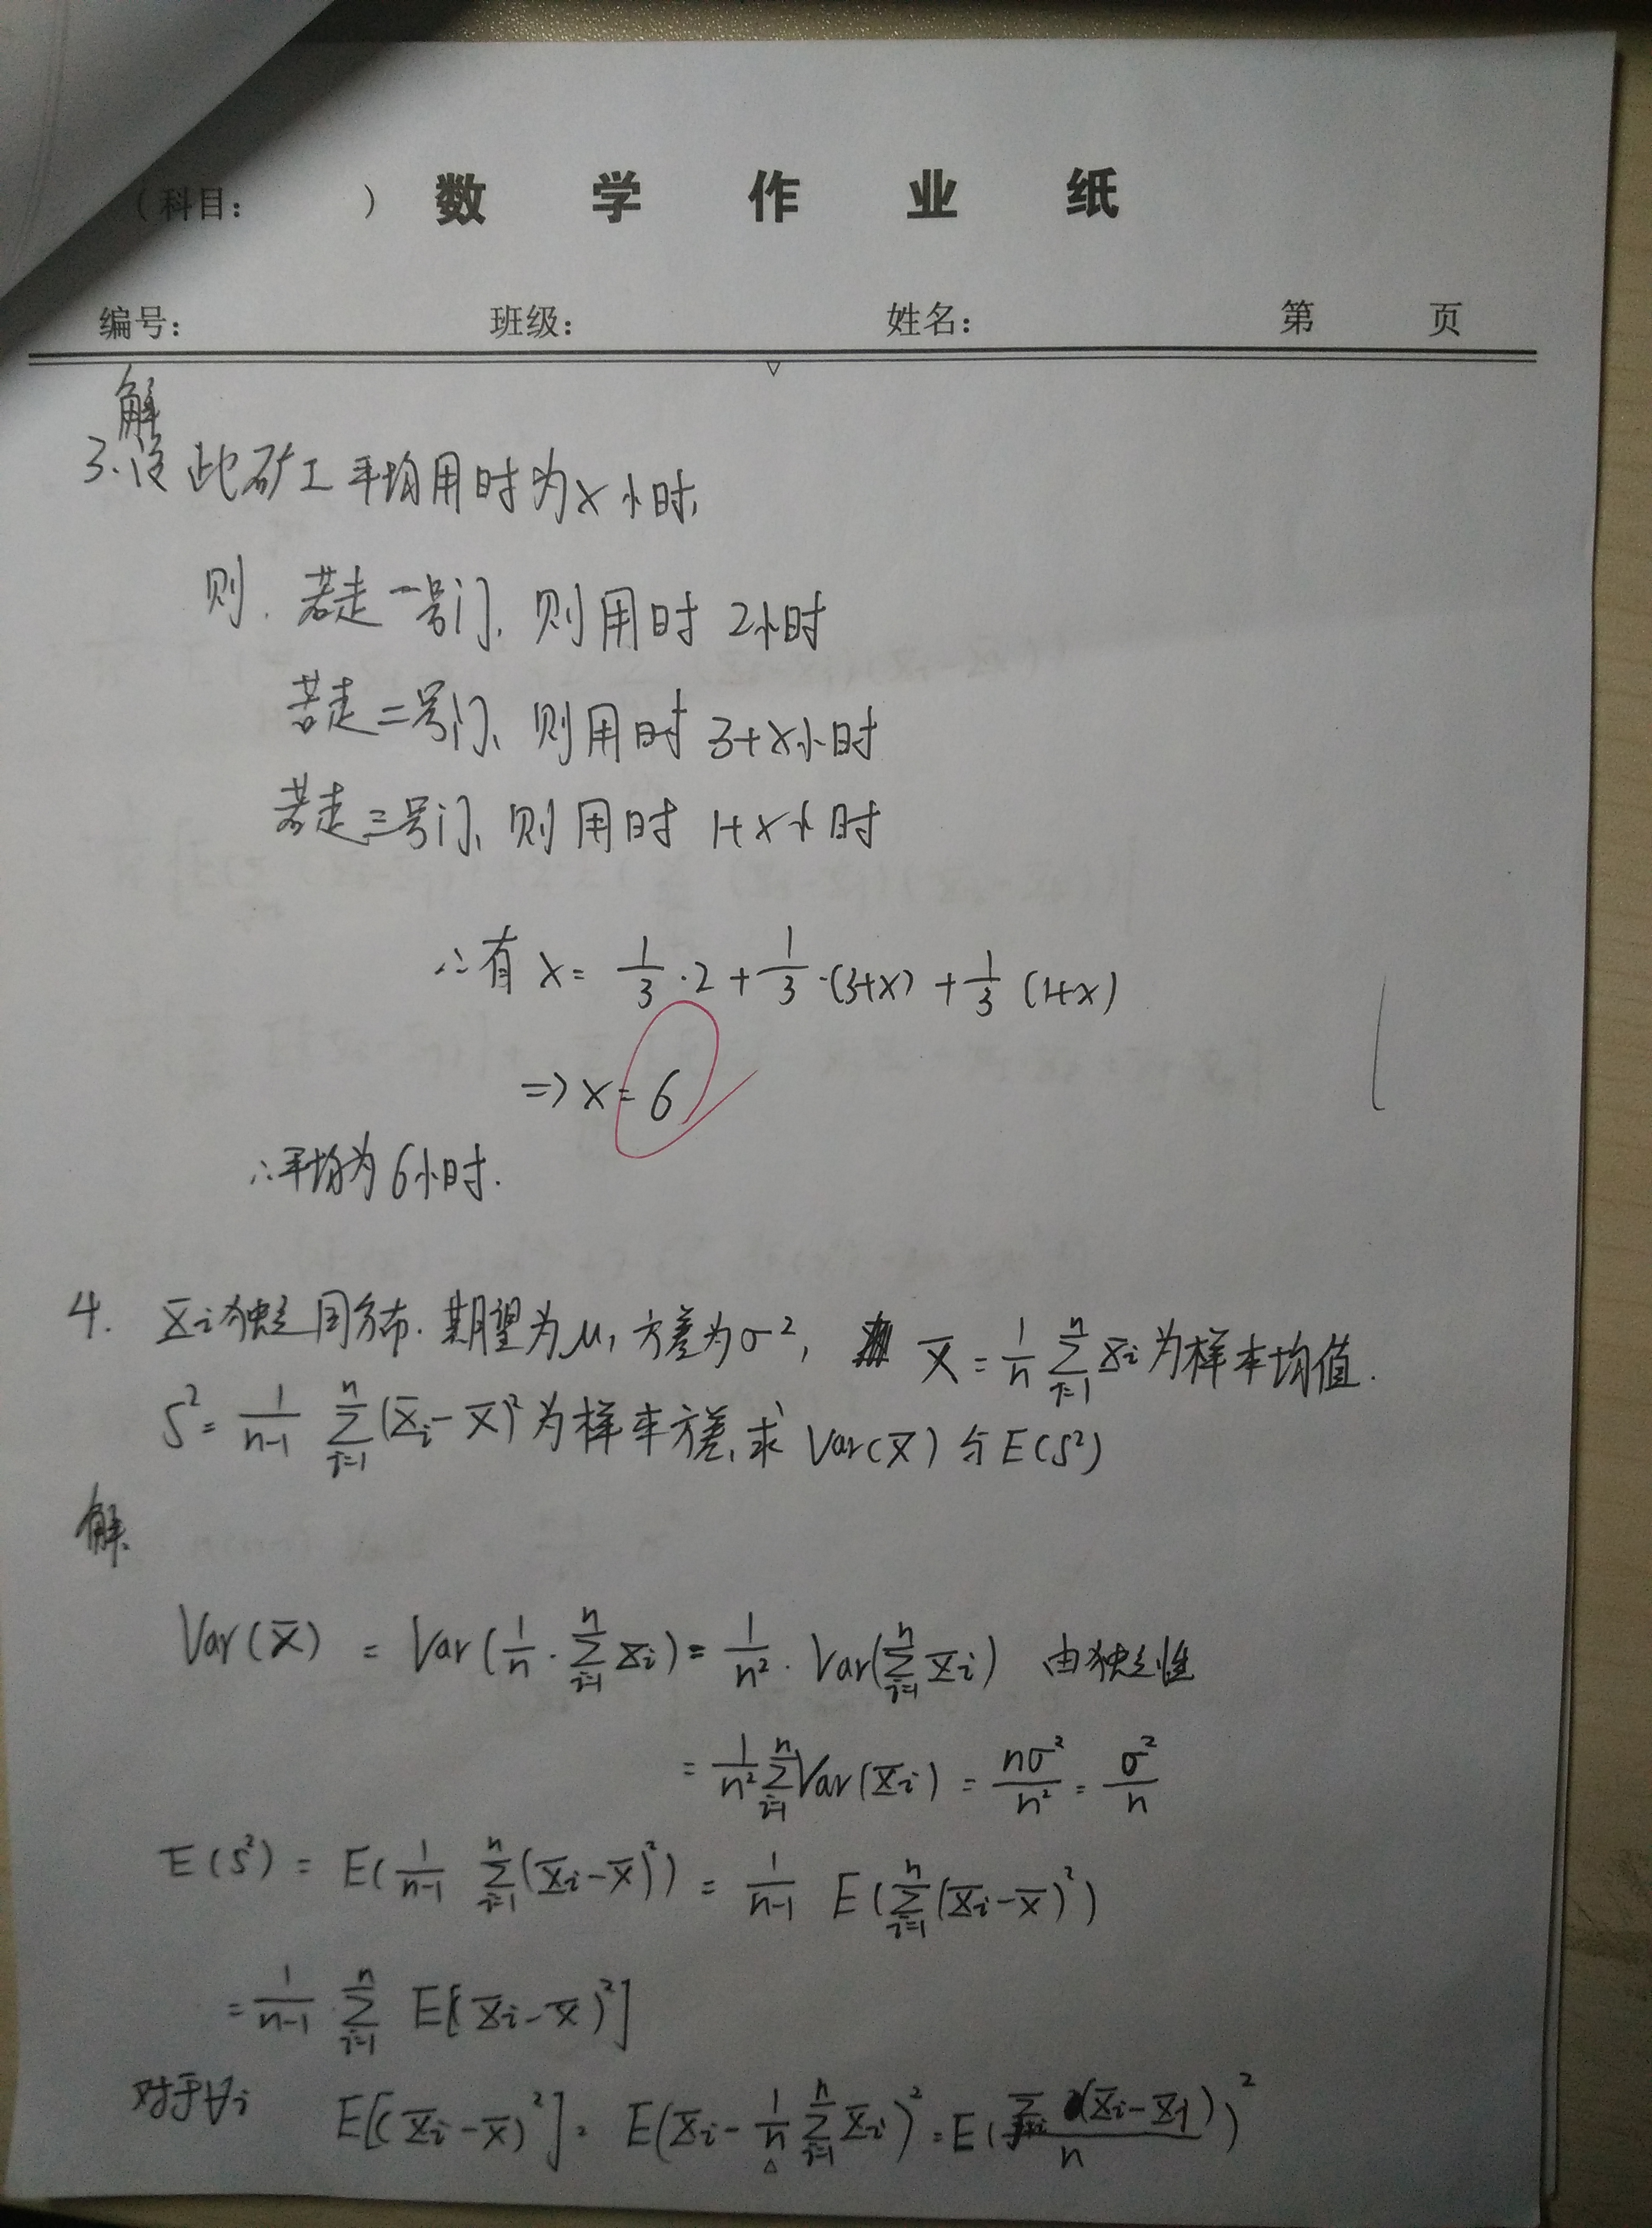 （科目：　　　） 数 学 作 业 纸
编号：　　　班级：　　　姓名：　　　第　　页
解
3. 设此矿工平均用时为x小时,
则. 若走一号门, 则用时 2小时
若走二号门、则用时 3+x小时
若走三号门、则用时 1+x小时
∴有 x = 1/3 · 2 + 1/3 · (3+x) + 1/3 (1+x)
=> x = 6
∴平均为 6小时.
4. X̲i独立同分布. 期望为μ, 方差为σ², X̄ = 1/n Σ_{i=1}^{n} Xi 为样本均值.
S² = 1/(n-1) Σ_{i=1}^{n} (Xi - X̄)² 为样本方差, 求 Var(X̄) 与 E(S²)
解.
Var(X̄) = Var(1/n · Σ_{i=1}^{n} Xi) = 1/n² · Var(Σ_{i=1}^{n} Xi) 由独立性
= 1/n² Σ_{i=1}^{n} Var(Xi) = nσ²/n² = σ²/n
E(S²) = E(1/(n-1) Σ_{i=1}^{n} (Xi - X̄)²) = 1/(n-1) E(Σ_{i=1}^{n} (Xi - X̄)²)
= 1/(n-1) Σ_{i=1}^{n} E[(Xi - X̄)²]
对于∀i E[(Xi - X̄)²] = E(Xi - 1/n Σ_{i=1}^{n} Xi)² = E( (Xi - Xj) / n )²